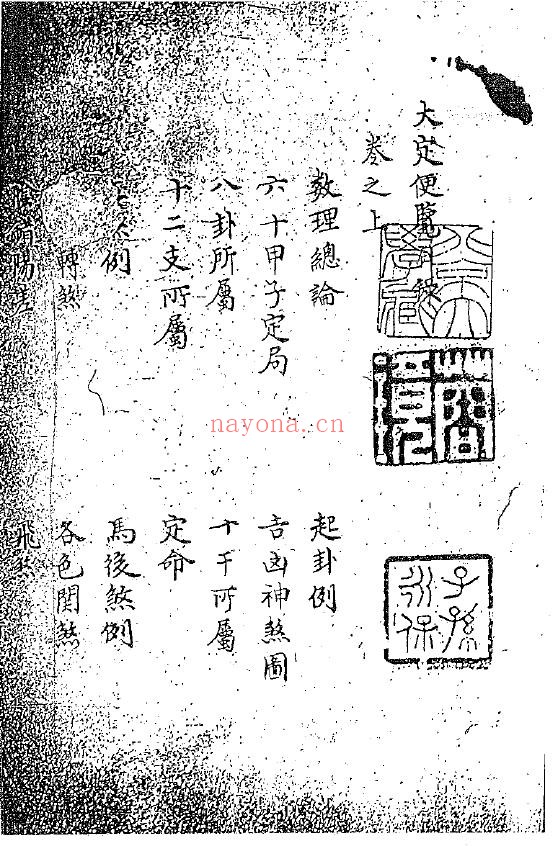 大定便覽目錄
卷之上
数理總論
起卦例
六十甲子定局
吉凶神煞圖
八卦所屬
十干所屬
十二支所屬
定命
例
馬後煞例
轉煞
各色関煞
飛煞
子孫
永保
nayona.cn